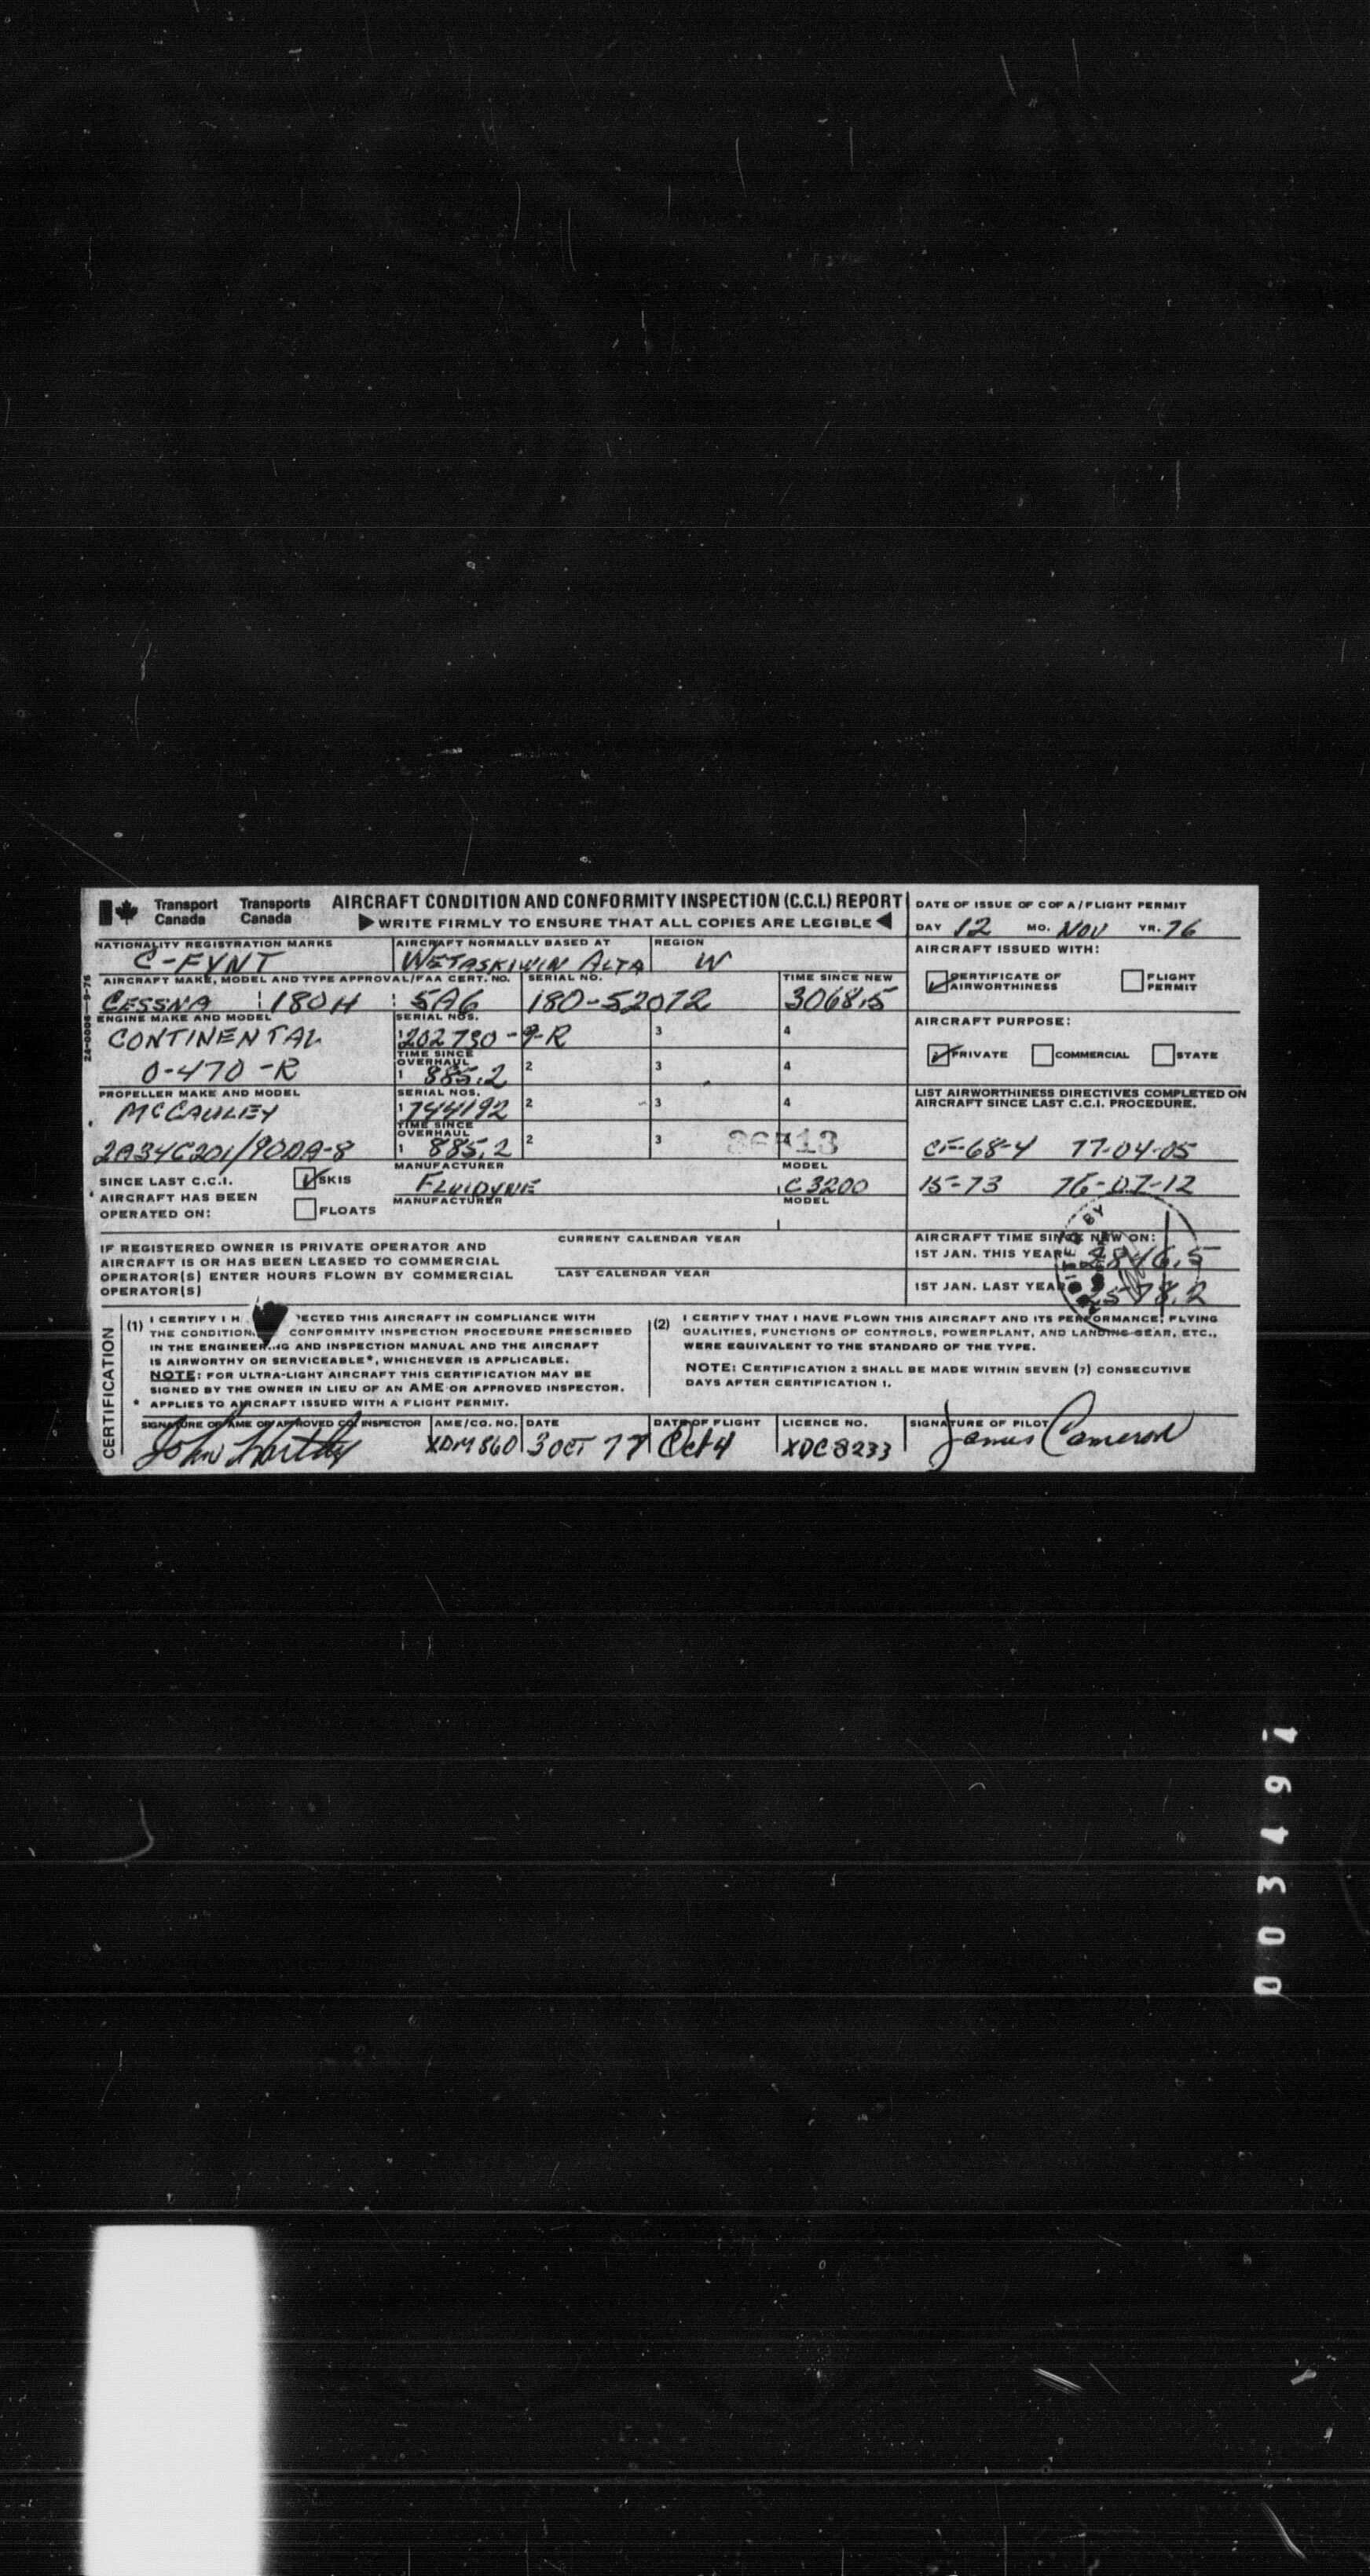 Transport Canada Transports Canada AIRCRAFT CONDITION AND CONFORMITY INSPECTION (C.C.I.) REPORT
WRITE FIRMLY TO ENSURE THAT ALL COPIES ARE LEGIBLE
DATE OF ISSUE OF C OF A / FLIGHT PERMIT
DAY 12 MO. NOV YR. 76
NATIONALITY REGISTRATION MARKS AIRCRAFT NORMALLY BASED AT REGION
C-FVNT WETASKIWIN ALTA W
AIRCRAFT ISSUED WITH:
CERTIFICATE OF AIRWORTHINESS FLIGHT PERMIT
AIRCRAFT MAKE, MODEL AND TYPE APPROVAL/FAA CERT. NO. SERIAL NO. TIME SINCE NEW
CESSNA 180H 5A6 180-52072 3068.5
ENGINE MAKE AND MODEL SERIAL NOS.
CONTINENTAL 1 202730-9-R 3 4
AIRCRAFT PURPOSE:
PRIVATE COMMERCIAL STATE
TIME SINCE OVERHAUL
O-470-R 1 885.2 2 3 4
PROPELLER MAKE AND MODEL SERIAL NOS.
McCAULEY 1 744192 2 3 4
LIST AIRWORTHINESS DIRECTIVES COMPLETED ON
AIRCRAFT SINCE LAST C.C.I. PROCEDURE.
TIME SINCE OVERHAUL
2A34C201/90DA-8 1 885.2 2 3
CF-68-4 77-04-05
15-73 76-07-12
SINCE LAST C.C.I. SKIS MANUFACTURER MODEL
FLUIDYNE C3200
AIRCRAFT HAS BEEN
OPERATED ON: FLOATS MANUFACTURER MODEL
IF REGISTERED OWNER IS PRIVATE OPERATOR AND
AIRCRAFT IS OR HAS BEEN LEASED TO COMMERCIAL
OPERATOR(S) ENTER HOURS FLOWN BY COMMERCIAL
OPERATOR(S)
CURRENT CALENDAR YEAR
LAST CALENDAR YEAR
AIRCRAFT TIME SINCE NEW ON:
1ST JAN. THIS YEAR 2846.5
1ST JAN. LAST YEAR 2578.2
BY
CERTIFICATION
(1) I CERTIFY I H ECTED THIS AIRCRAFT IN COMPLIANCE WITH
THE CONDITION CONFORMITY INSPECTION PROCEDURE PRESCRIBED
IN THE ENGINEERING AND INSPECTION MANUAL AND THE AIRCRAFT
IS AIRWORTHY OR SERVICEABLE*, WHICHEVER IS APPLICABLE.
NOTE: FOR ULTRA-LIGHT AIRCRAFT THIS CERTIFICATION MAY BE
SIGNED BY THE OWNER IN LIEU OF AN AME OR APPROVED INSPECTOR.
* APPLIES TO AIRCRAFT ISSUED WITH A FLIGHT PERMIT.
(2) I CERTIFY THAT I HAVE FLOWN THIS AIRCRAFT AND ITS PERFORMANCE, FLYING
QUALITIES, FUNCTIONS OF CONTROLS, POWERPLANT, AND LANDING GEAR, ETC.,
WERE EQUIVALENT TO THE STANDARD OF THE TYPE.
NOTE: CERTIFICATION 2 SHALL BE MADE WITHIN SEVEN (7) CONSECUTIVE
DAYS AFTER CERTIFICATION 1.
SIGNATURE OF AME OR APPROVED CO. INSPECTOR AME/CO. NO. DATE DATE OF FLIGHT LICENCE NO. SIGNATURE OF PILOT
John XDM860 3 OCT 77 Oct 4 XDC8233 James Cameron
003494